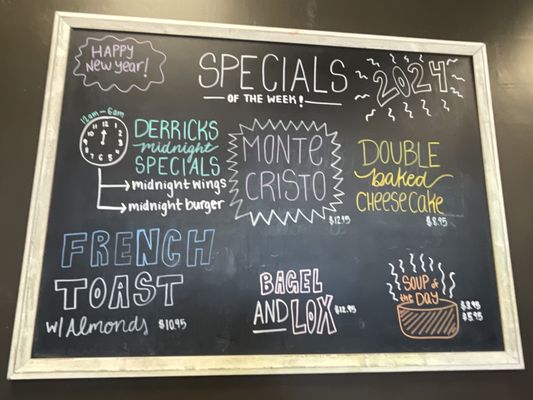 HAPPY
New YEAR!
SPECIALS
OF THE WEEK!
2024
12am-6am
12
DERRICKS
midnight
SPECIALS
midnight wings
midnight burger
MONTE
CRISTO
$12.95
DOUBLE
baked
CHEESECAKE
$8.95
FRENCH
TOAST
W/ Almonds $10.95
BAGEL
AND LOX $12.95
SOUP of
the DAY
$5.95